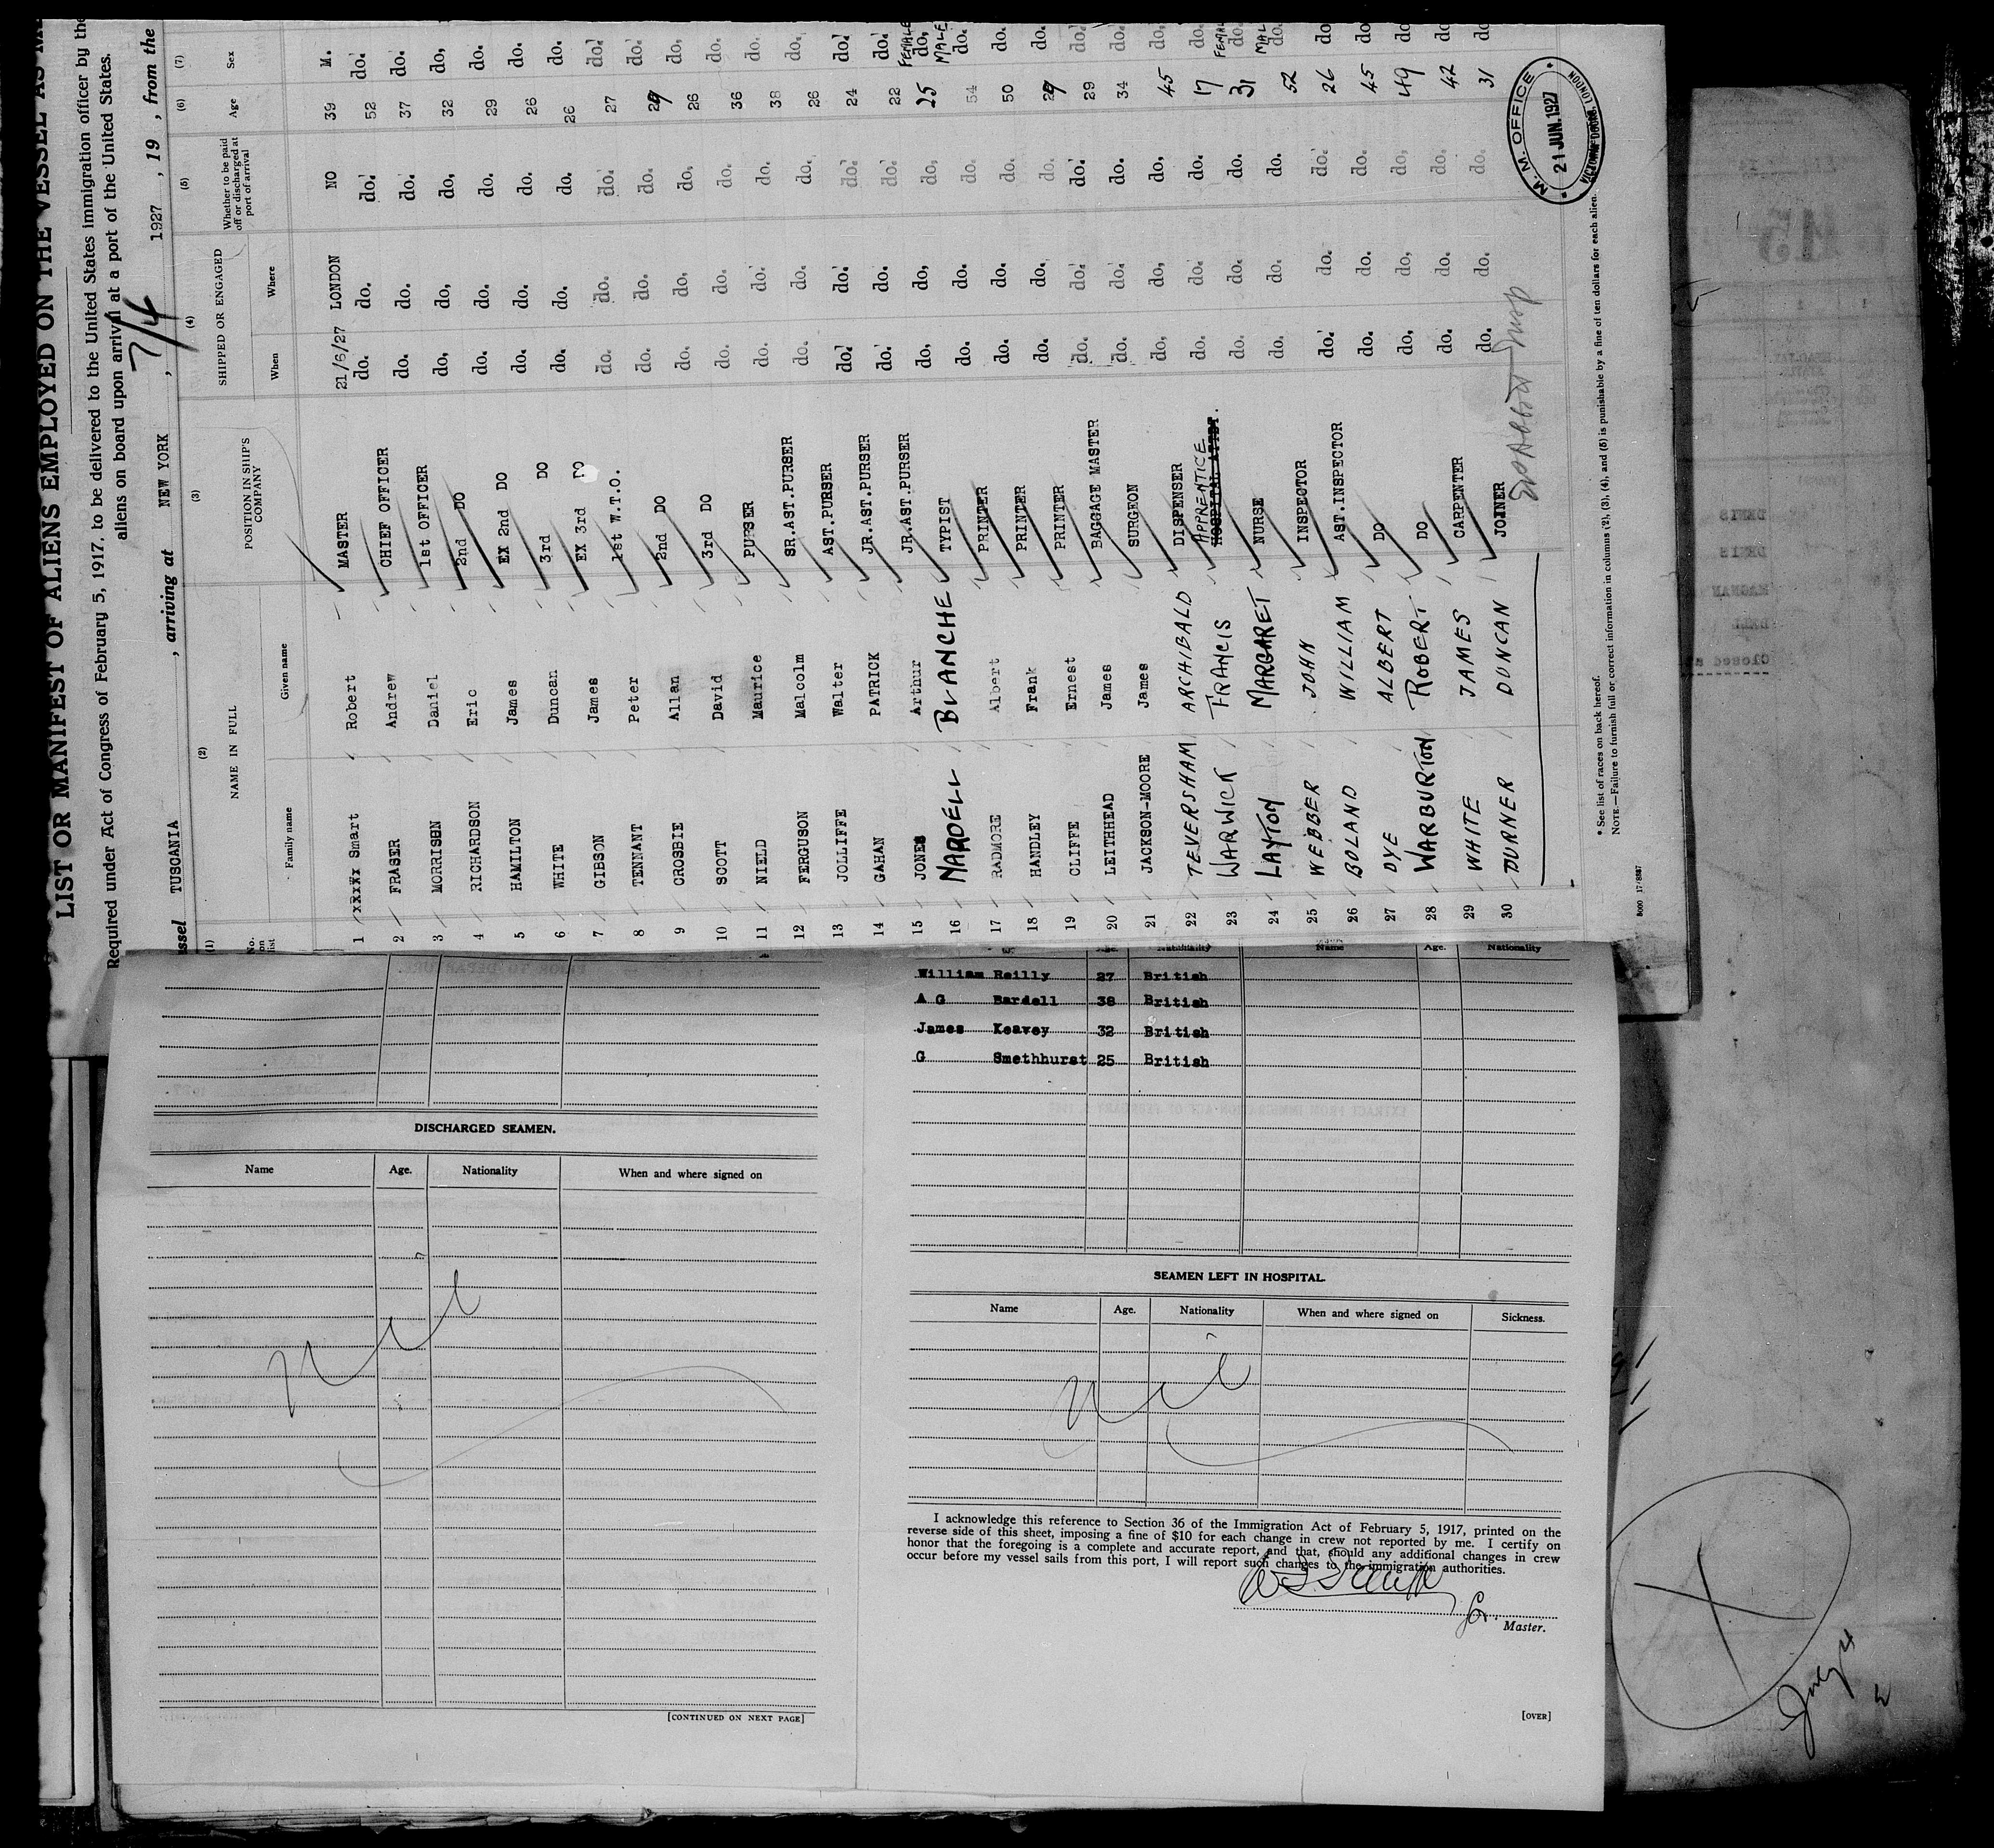 LIST OR MANIFEST OF ALIENS EMPLOYED ON THE VESSEL AS M
Required under Act of Congress of February 5, 1917, to be delivered to the United States immigration officer by the
aliens on board upon arrival at a port of the United States.
ssel TUSCANIA , arriving at NEW YORK , 7/4 1927 , 19 , from the
(1) (2) (3) (4) (5) (6) (7)
No. on list NAME IN FULL POSITION IN SHIP'S COMPANY SHIPPED OR ENGAGED Whether to be paid off or discharged at port of arrival Age Sex
Family name Given name When Where
1 xxxxx Smart Robert MASTER 21/6/27 LONDON NO 39 M.
2 FRASER Andrew CHIEF OFFICER do. do. do. 52 do.
3 MORRISSN Daniel 1st OFFICER do. do. do. 37 do.
4 RICHARDSON Eric 2nd DO do. do. do. 32 do.
5 HAMILTON James EX 2nd DO do. do. do. 29 do.
6 WHITE Duncan 3rd DO do. do. do. 26 do.
7 GIBSON James EX 3rd DO do. do. do. 26 do.
8 TENNANT Peter 1st W.T.O. do. do. do. 27 do.
9 CROSBIE Allan 2nd DO do. do. do. 29 do.
10 SCOTT David 3rd DO do. do. do. 26 do.
11 NIELD Maurice PURSER do. do. do. 36 do.
12 FERGUSON Malcolm SR.AST.PURSER do. do. do. 38 do.
13 JOLLIFFE Walter AST.PURSER do. do. do. 26 do.
14 GAHAN PATRICK JR.AST.PURSER do. do. do. 24 do.
15 JONES Arthur JR.AST.PURSER do. do. do. 22 do.
16 MARDELL BLANCHE TYPIST do. do. do. 25 FEMALE do.
17 RADMORE Albert PRINTER do. do. do. 54 MALE do.
18 HANDLEY Frank PRINTER do. do. do. 50 do.
19 CLIFFE Ernest PRINTER do. do. do. 29 do.
20 LEITHHEAD James BAGGAGE MASTER do. do. do. 29 do.
21 JACKSON-MOORE James SURGEON do. do. do. 34 do.
22 TEVERSHAM ARCHIBALD DISPENSER do. do. do. 45 do.
23 WARWICK FRANCIS APPRENTICE HOSPITAL ATTDT. do. do. do. 17 do.
24 LAYTON MARGARET NURSE do. do. do. 31 FEMALE do.
25 WEBBER JOHN INSPECTOR do. do. do. 52 MAL do.
26 BOLAND WILLIAM AST.INSPECTOR do. do. do. 26 do
27 DYE ALBERT DO do. do. do. 45 do
28 WARBURTON ROBERT DO do. do. do. 49 do
29 WHITE JAMES CARPENTER do. do. do. 42 do
30 TURNER DUNCAN JOINER do. do. do. 31 do
M. M. OFFICE
21 JUN. 1927
VICTORIA DOCKS, LONDON
* See list of races on back hereof.
NOTE.—Failure to furnish full or correct information in columns (2), (3), (4), and (5) is punishable by a fine of ten dollars for each alien.
DISCHARGED SEAMEN.
Name Age. Nationality When and where signed on
Nil
[CONTINUED ON NEXT PAGE]
Age. Nationality Name Age. Nationality
William Reilly 27 British
A G Bardell 38 British
James Keavey 32 British
G Smethhurst 25 British
SEAMEN LEFT IN HOSPITAL.
Name Age. Nationality When and where signed on Sickness.
Nil
I acknowledge this reference to Section 36 of the Immigration Act of February 5, 1917, printed on the
reverse side of this sheet, imposing a fine of $10 for each change in crew not reported by me. I certify on
honor that the foregoing is a complete and accurate report, and that, should any additional changes in crew
occur before my vessel sails from this port, I will report such changes to the immigration authorities.
Master.
[OVER]
July 4